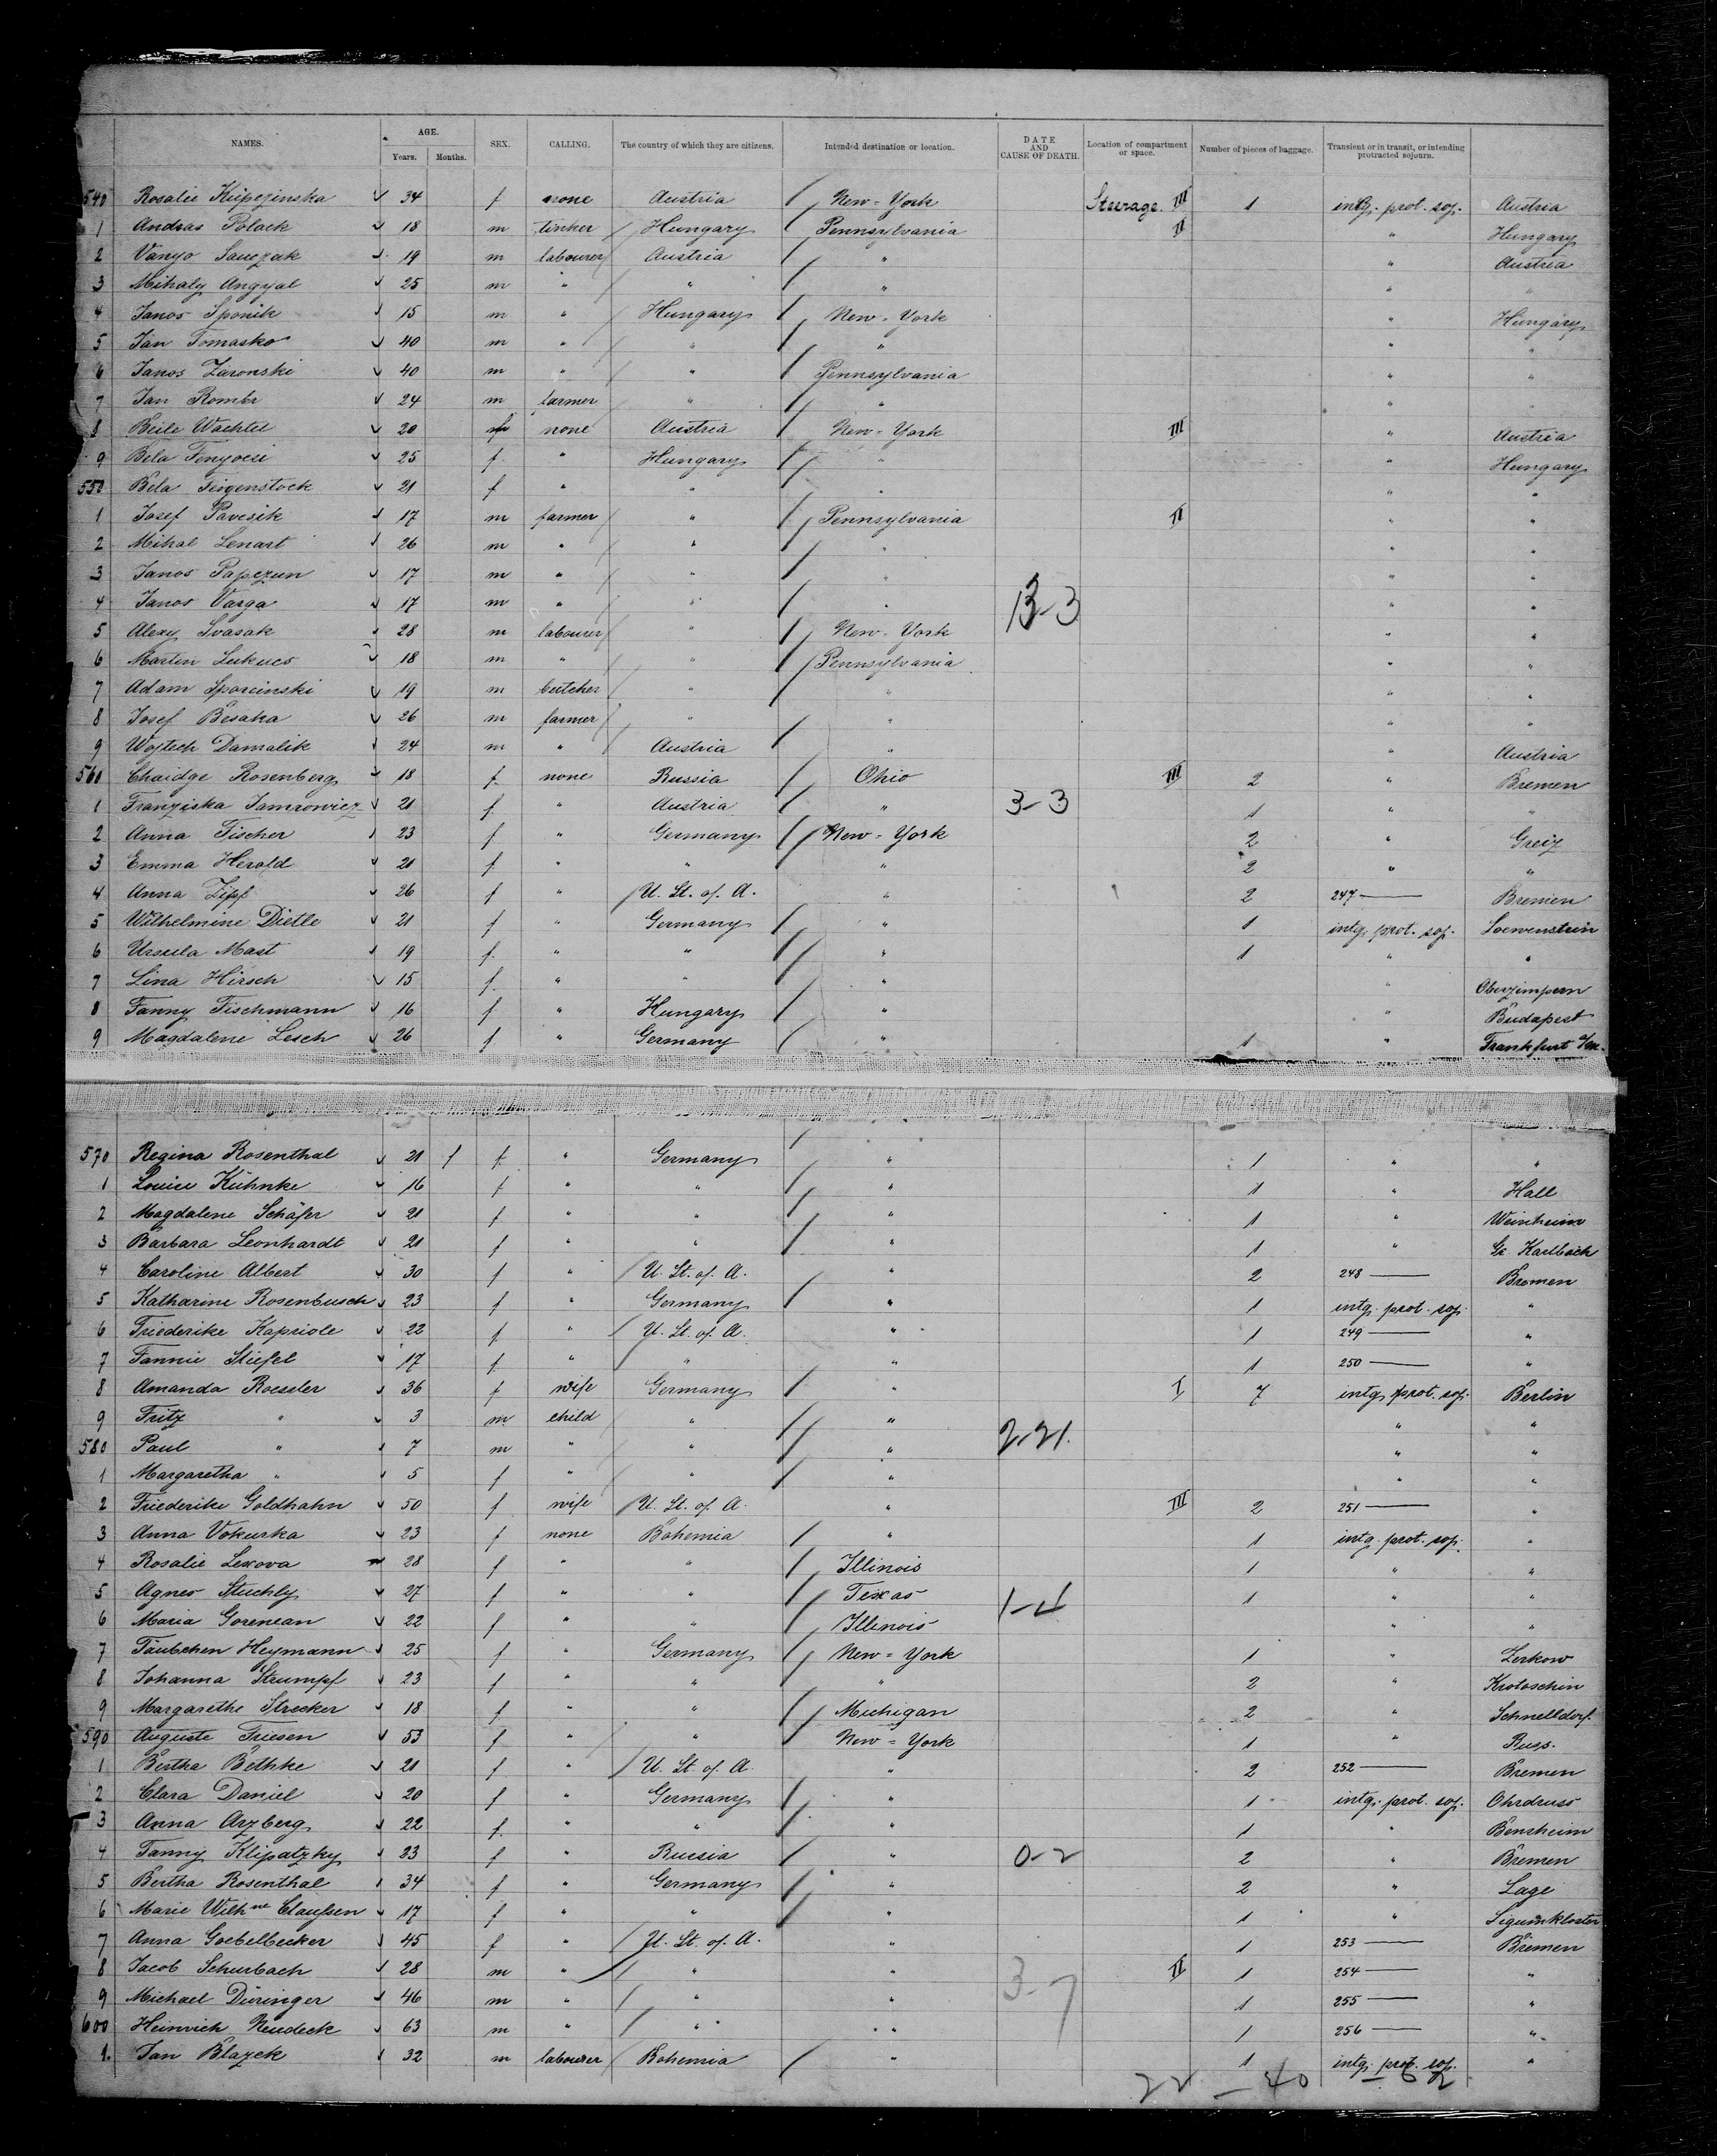 NAMES. AGE. Years. Months. SEX. CALLING. The country of which they are citizens. Intended destination or location. DATE AND CAUSE OF DEATH. Location of compartment or space. Number of pieces of baggage. Transient or in transit, or intending protracted sojourn.
540 Rosalie Küpezinska 34 f none Austria New-York Steerage III 1 intg. prot. soj. Austria
1 Andras Polack 18 m tinker Hungary Pennsylvania II " Hungary
2 Vanyo Sauczak 19 m labourer Austria " " Austria
3 Mihaly Angyal 25 m " " " " "
4 Janos Sponik 15 m " Hungary New-York " Hungary
5 Jan Tomasko 40 m " " " " "
6 Janos Zaronski 40 m " " Pennsylvania " "
7 Jan Rombr 24 m farmer " " " "
8 Beile Wachtel 20 f none Austria New-York III " Austria
9 Bela Fenyoesi 25 f " Hungary " " Hungary
550 Bela Feigenstock 21 f " " " " "
1 Josef Pavesik 17 m farmer " Pennsylvania II " "
2 Mihal Lenart 26 m " " " " "
3 Janos Papezun 17 m " " " " "
4 Janos Varga 17 m " " " 13-3 " "
5 Alexy Svasak 28 m labourer " New-York " "
6 Martin Lukucs 18 m " " Pennsylvania " "
7 Adam Sporcinski 19 m butcher " " " "
8 Josef Besaha 26 m farmer " " " "
9 Wojtech Damalik 24 m " Austria " " Austria
560 Chaidge Rosenberg 18 f none Russia Ohio III 2 " Bremen
1 Franziska Jamrowicz 21 f " Austria " 3-3 1 " "
2 Anna Fischer 23 f " Germany New-York 2 " Greiz
3 Emma Herold 21 f " " " 2 " "
4 Anna Zipf 26 f " U. St. of. A. " 2 247 Bremen
5 Wilhelmine Dietle 21 f " Germany " 1 intg. prot. soj. Loewenstein
6 Ursula Mast 19 f " " " 1 " "
7 Lina Hirsch 15 f " " " " Oberzimpern
8 Fanny Fischmann 16 f " Hungary " " Budapest
9 Magdalene Lesch 26 f " Germany " 1 " Frankfurt
570 Regina Rosenthal 21 f " Germany " 1 " "
1 Louise Kühnke 16 f " " " 1 " Hall
2 Magdalene Schäfer 21 f " " " 1 " Weinheim
3 Barbara Leonhardt 21 f " " " 1 " Gr Karlbach
4 Caroline Albert 30 f " U. St. of. A. " 2 248 Bremen
5 Katharine Rosenbusch 23 f " Germany " 1 intg. prot. soj. "
6 Friederike Kapriole 22 f " U. St. of. A. " 1 249 "
7 Fannie Stiefel 17 f " " " 1 250 "
8 Amanda Roessler 36 f wife Germany " I 7 intg. prot. soj. Berlin
9 Fritz " 3 m child " " " "
580 Paul " 7 m " " " 2-21. " "
1 Margaretha " 5 f " " " " "
2 Friederike Goldhahn 50 f wife U. St. of. A. " III 2 251 "
3 Anna Vokurka 23 f none Bohemia " 1 intg. prot. soj. "
4 Rosalie Lexova 28 f " " Illinois 1 " "
5 Agnes Stuchly 27 f " " Texas 1-4 1 " "
6 Maria Gorenean 22 f " " Illinois " "
7 Täubchen Heymann 25 f " Germany New-York 1 " Zerkow
8 Johanna Strumpf 23 f " " " 2 " Krotoschin
9 Margarethe Strecker 18 f " " Michigan 2 " Schnelldorf
590 Auguste Friesen 53 f " " New-York 1 " Russ.
1 Bertha Bethke 21 f " U. St. of. A. " 2 252 Bremen
2 Clara Daniel 20 f " Germany " 1 intg. prot. soj. Ohrdruss
3 Anna Arzberg 22 f " " " 1 " Bensheim
4 Fanny Klipatzky 23 f " Russia " 0-2 2 " Bremen
5 Bertha Rosenthal 34 f " Germany " 2 " Lage
6 Marie Wilhne Claussen 17 f " " " 1 " Ligumkloster
7 Anna Goebelbecker 45 f " U. St. of. A. " 1 253 Bremen
8 Jacob Schurbach 28 m " " " 3-7 II 1 254 "
9 Michael Düringer 46 m " " " 1 255 "
600 Heinrich Neudeck 63 m " " " 1 256 "
1. Jan Blazek 32 m labourer Bohemia " 1 intg. prot. soj. "
22 - 40 - 62